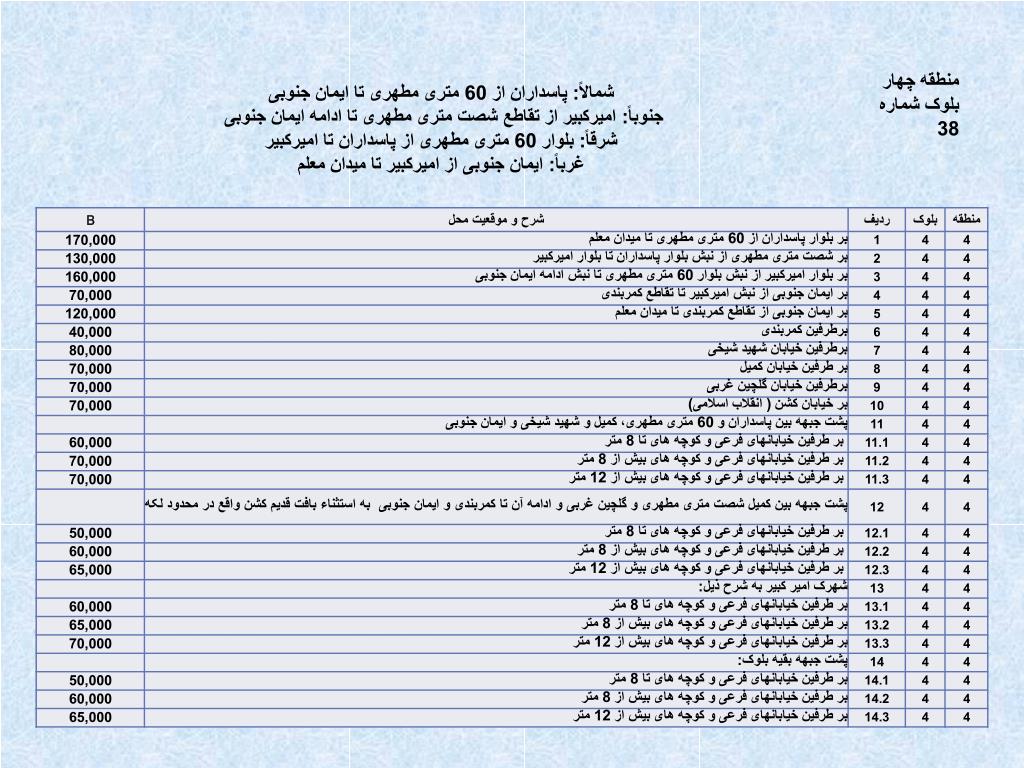 منطقه چهار
بلوک شماره
38
شمالاً: پاسداران از 60 متری مطهری تا ایمان جنوبی
جنوباً: امیرکبیر از تقاطع شصت متری مطهری تا ادامه ایمان جنوبی
شرقاً: بلوار 60 متری مطهری از پاسداران تا امیرکبیر
غرباً: ایمان جنوبی از امیرکبیر تا میدان معلم
منطقه بلوک ردیف شرح و موقعیت محل B
4 4 1 بر بلوار پاسداران از 60 متری مطهری تا میدان معلم 170,000
4 4 2 بر شصت متری مطهری از نبش بلوار پاسداران تا بلوار امیرکبیر 130,000
4 4 3 بر بلوار امیرکبیر از نبش بلوار 60 متری مطهری تا نبش ادامه ایمان جنوبی 160,000
4 4 4 بر ایمان جنوبی از نبش امیرکبیر تا تقاطع کمربندی 70,000
4 4 5 بر ایمان جنوبی از تقاطع کمربندی تا میدان معلم 120,000
4 4 6 برطرفین کمربندی 40,000
4 4 7 برطرفین خیابان شهید شیخی 80,000
4 4 8 بر طرفین خیابان کمیل 70,000
4 4 9 برطرفین خیابان گلچین غربی 70,000
4 4 10 بر خیابان کشن ( انقلاب اسلامی) 70,000
4 4 11 پشت جبهه بین پاسداران و 60 متری مطهری، کمیل و شهید شیخی و ایمان جنوبی
4 4 11.1 بر طرفین خیابانهای فرعی و کوچه های تا 8 متر 60,000
4 4 11.2 بر طرفین خیابانهای فرعی و کوچه های بیش از 8 متر 70,000
4 4 11.3 بر طرفین خیابانهای فرعی و کوچه های بیش از 12 متر 70,000
4 4 12 پشت جبهه بین کمیل شصت متری مطهری و گلچین غربی و ادامه آن تا کمربندی و ایمان جنوبی به استثناء بافت قدیم کشن واقع در محدود لکه
4 4 12.1 بر طرفین خیابانهای فرعی و کوچه های تا 8 متر 50,000
4 4 12.2 بر طرفین خیابانهای فرعی و کوچه های بیش از 8 متر 60,000
4 4 12.3 بر طرفین خیابانهای فرعی و کوچه های بیش از 12 متر 65,000
4 4 13 شهرک امیر کبیر به شرح ذیل:
4 4 13.1 بر طرفین خیابانهای فرعی و کوچه های تا 8 متر 60,000
4 4 13.2 بر طرفین خیابانهای فرعی و کوچه های بیش از 8 متر 65,000
4 4 13.3 بر طرفین خیابانهای فرعی و کوچه های بیش از 12 متر 70,000
4 4 14 پشت جبهه بقیه بلوک:
4 4 14.1 بر طرفین خیابانهای فرعی و کوچه های تا 8 متر 50,000
4 4 14.2 بر طرفین خیابانهای فرعی و کوچه های بیش از 8 متر 60,000
4 4 14.3 بر طرفین خیابانهای فرعی و کوچه های بیش از 12 متر 65,000